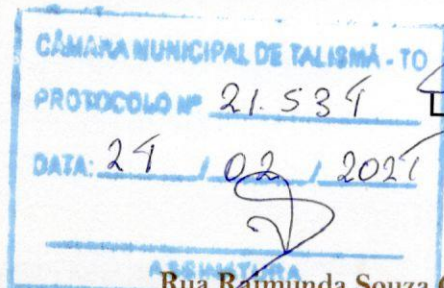 CÂMARA MUNICIPAL DE TALISMÃ - TO
PROTOCOLO Nº 21.534
DATA: 24 / 02 / 2021
ASSINATURA
Rua Raimunda Souza